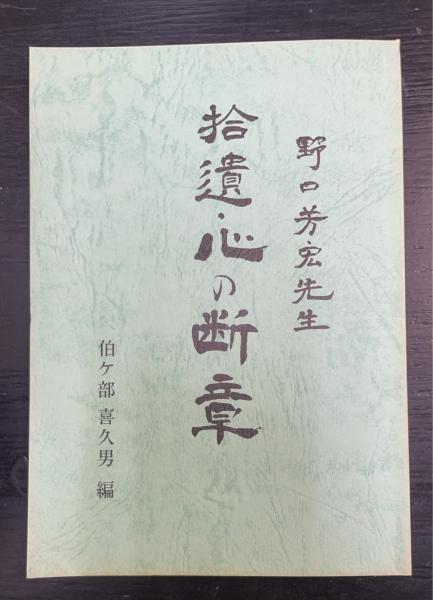 野口芳宏先生
拾遺・心の断章
伯ケ部 喜久男 編